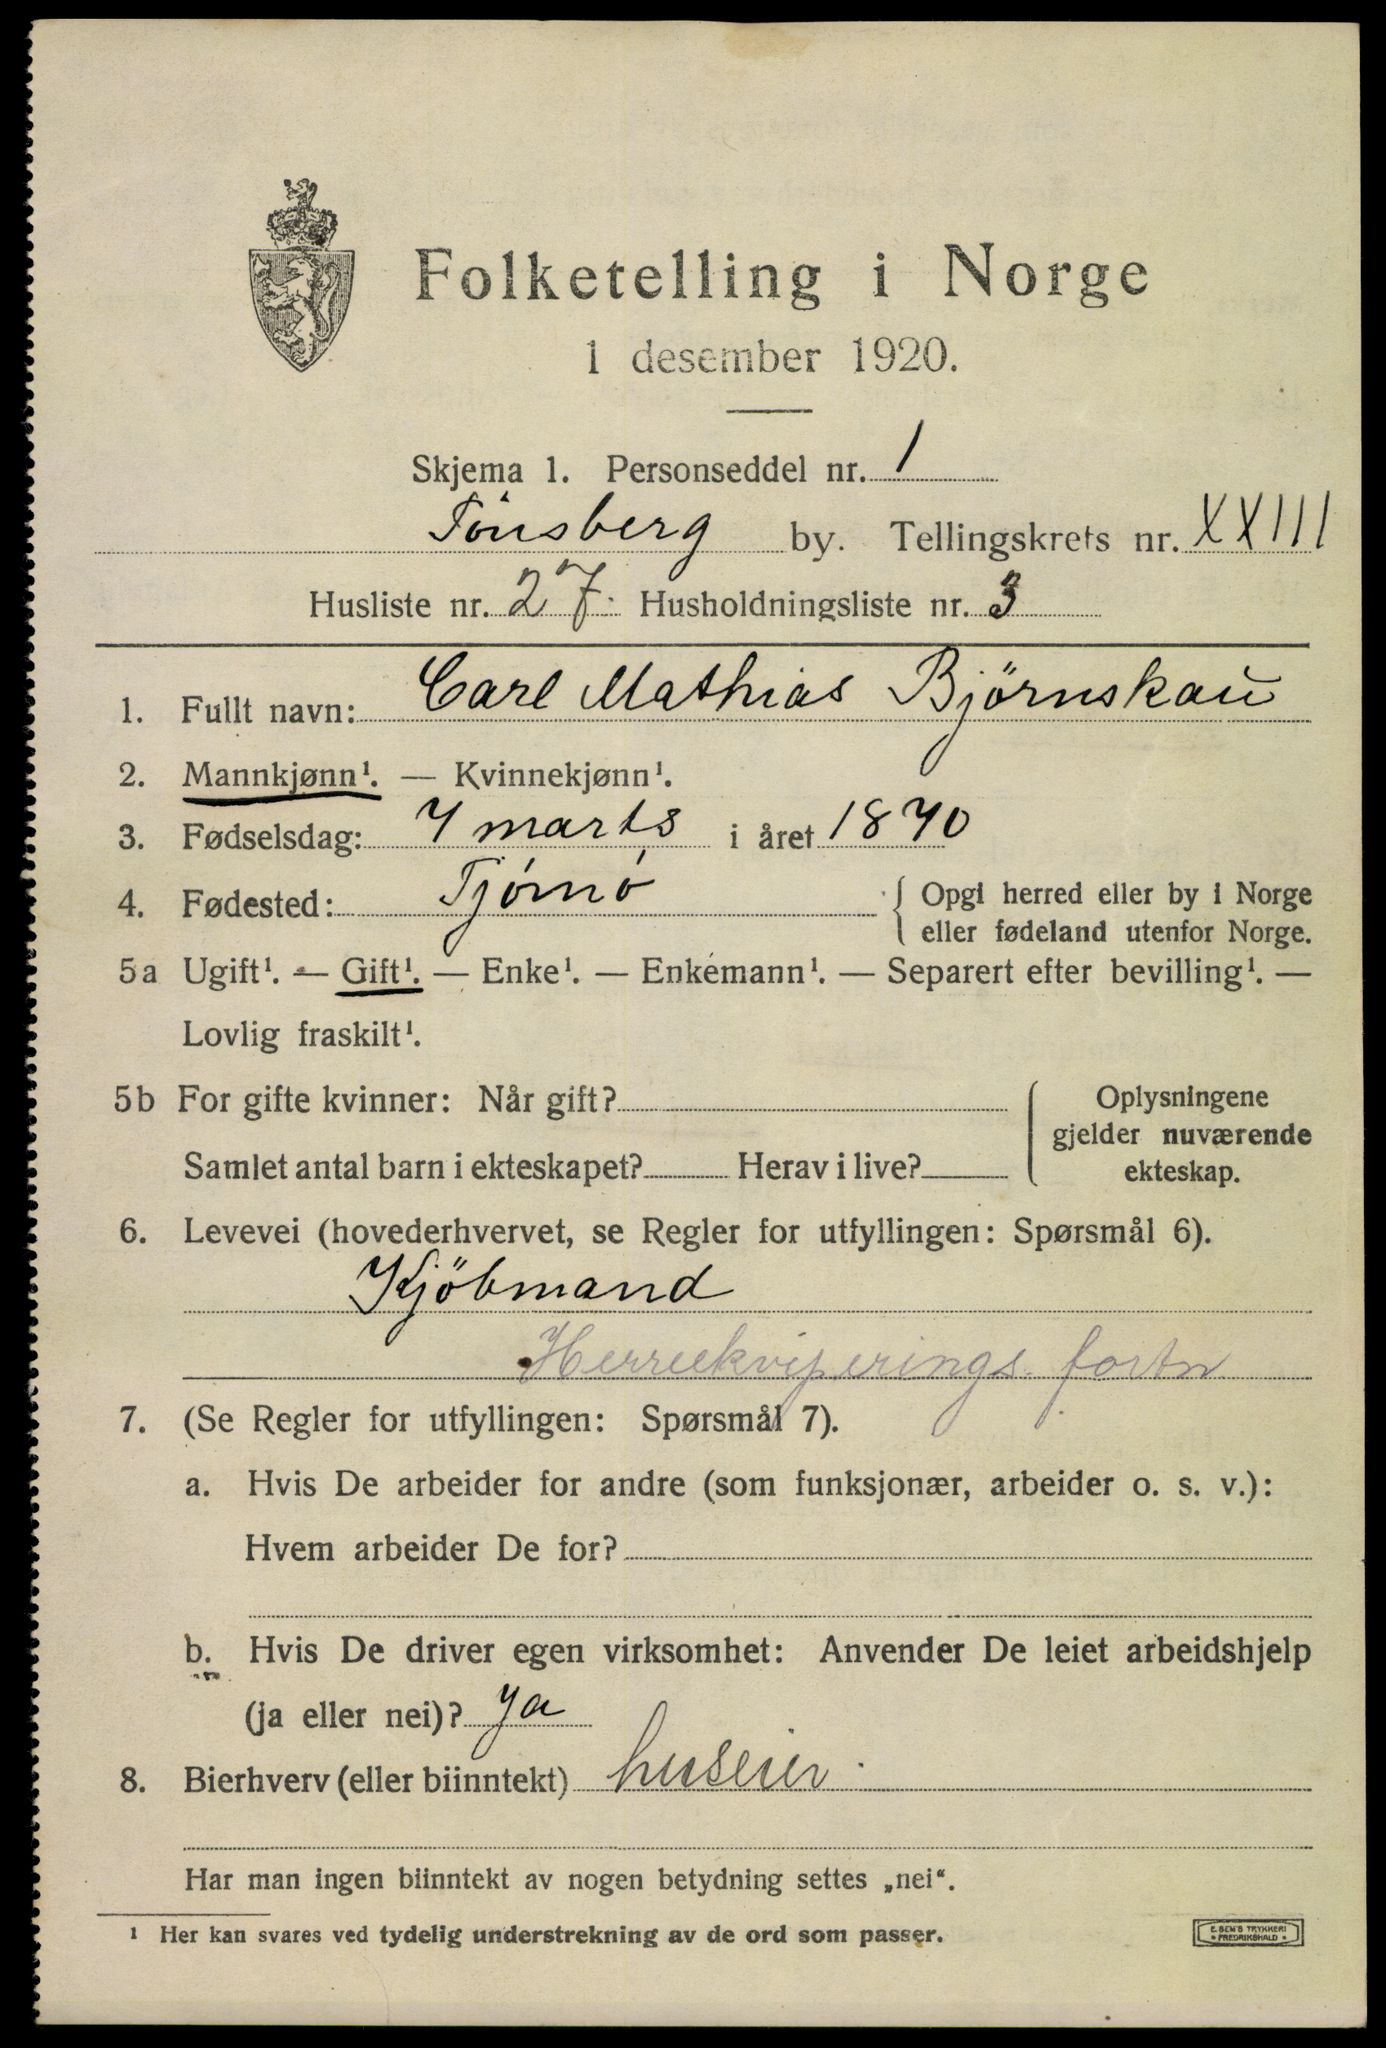 Folketelling i Norge
1 desember 1920.
Skjema 1. Personseddel nr. 1
Tönsberg by. Tellingskrets nr. XXIII
Husliste nr. 27. Husholdningsliste nr. 3
1. Fullt navn: Carl Mathias Björnskau
2. Mannkjønn¹. — Kvinnekjønn¹.
3. Fødselsdag: 7 marts i året 1870
4. Fødested: Tjømö { Opgi herred eller by i Norge
eller fødeland utenfor Norge.
5a Ugift¹. — Gift¹. — Enke¹. — Enkemann¹. — Separert efter bevilling¹. —
Lovlig fraskilt¹.
5b For gifte kvinner: Når gift?
Samlet antal barn i ekteskapet? Herav i live?
Oplysningene
gjelder nuværende
ekteskap.
6. Levevei (hovederhvervet, se Regler for utfyllingen: Spørsmål 6).
Kjöbmand
Herreekviperings. fortn
7. (Se Regler for utfyllingen: Spørsmål 7).
a. Hvis De arbeider for andre (som funksjonær, arbeider o. s. v.):
Hvem arbeider De for?
b. Hvis De driver egen virksomhet: Anvender De leiet arbeidshjelp
(ja eller nei)? ja
8. Bierhverv (eller biinntekt) huseier.
Har man ingen biinntekt av nogen betydning settes „nei“.
¹ Her kan svares ved tydelig understrekning av de ord som passer.
E. SEM'S TRYKKERI
FREDRIKSHALD